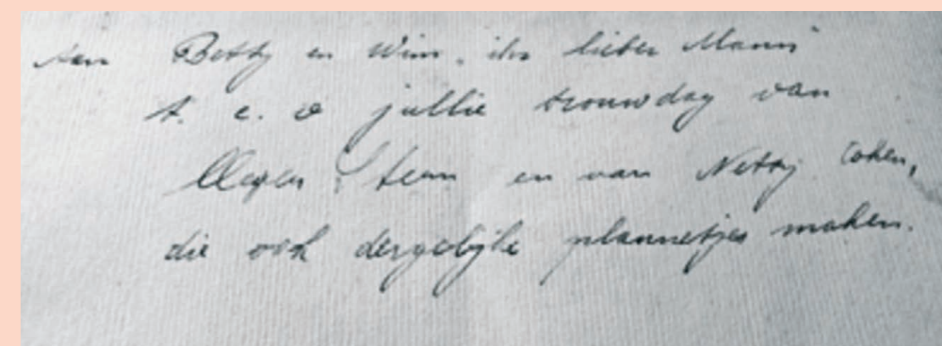 Aan Betty en Wim, ihr lieber Mann
t. e. v jullie trouwdag van
Stern en van Netty Cohen,
die ook dergelijke plannetjes maken.